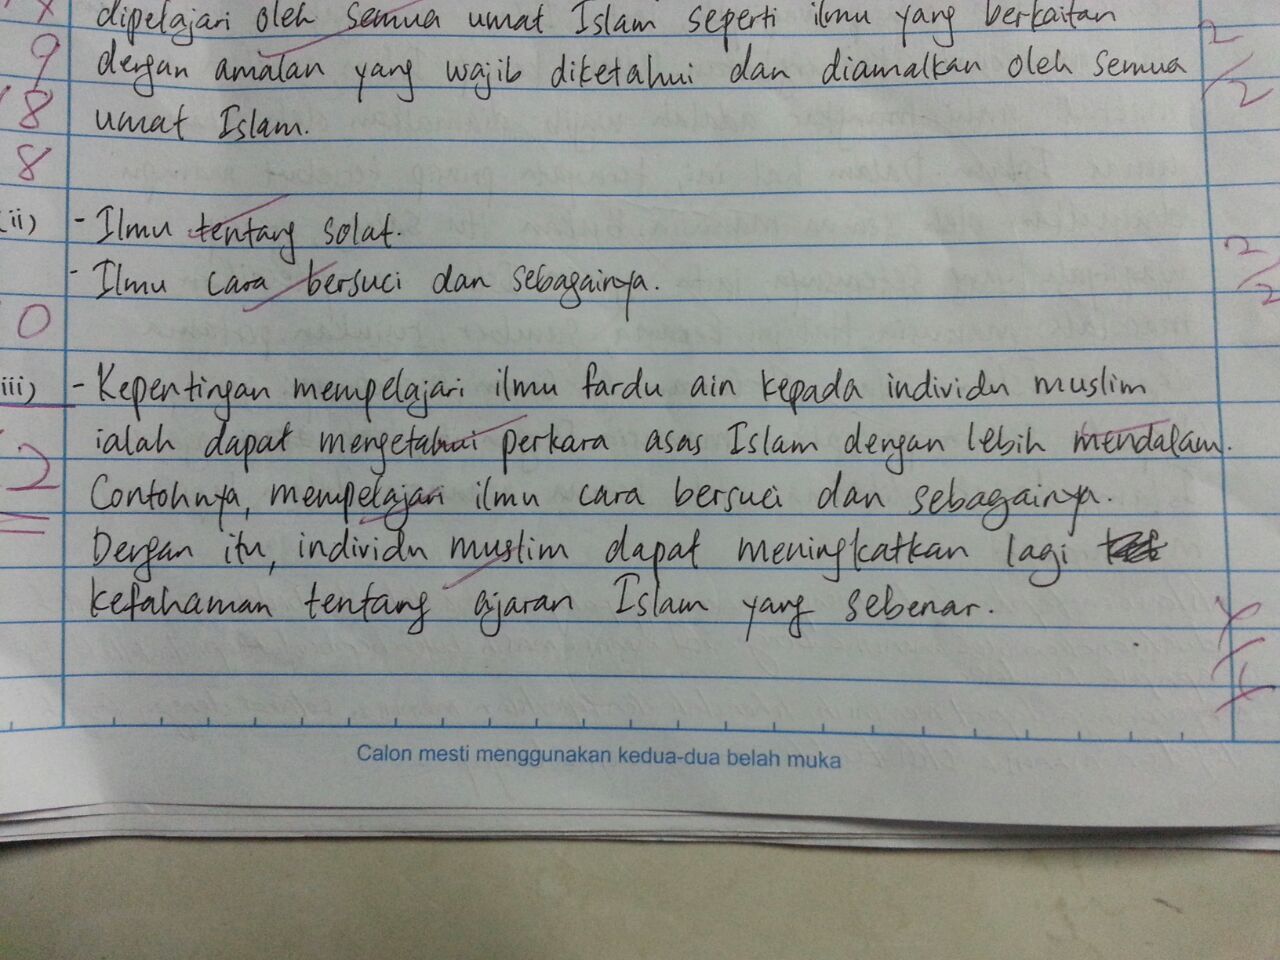 dipelajari oleh semua umat Islam seperti ilmu yang berkaitan
dengan amalan yang wajib diketahui dan diamalkan oleh semua
umat Islam.
9
8
8
2/2
(ii) - Ilmu tentang solat.
- Ilmu cara bersuci dan sebagainya.
2/2
0
iii) - Kepentingan mempelajari ilmu fardu ain kepada individu muslim
ialah dapat mengetahui perkara asas Islam dengan lebih mendalam.
2
Contohnya, mempelajari ilmu cara bersuci dan sebagainya.
Dengan itu, individu muslim dapat meningkatkan lagi
kefahaman tentang ajaran Islam yang sebenar.
Calon mesti menggunakan kedua-dua belah muka